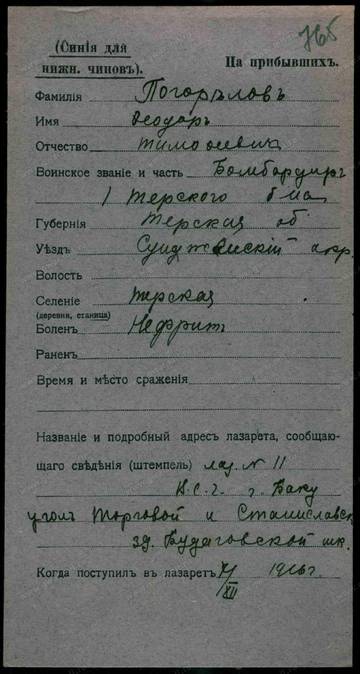 765
(Синія для
нижн. чиновъ).
На прибывшихъ.
Фамилія Погорѣловъ
Имя Ѳеодоръ
Отчество Тимоѳеевичъ
Воинское званіе и часть Бомбардиръ
1 Терского
Губернія Терская об
Уѣздъ Сунженскій окр.
Волость
Селеніе Терская
(деревня, станица)
Боленъ Нефрит
Раненъ
Время и мѣсто сраженія
Названіе и подробный адресъ лазарета, сообщаю-
щаго свѣдѣнія (штемпель) лаз. N 11
В.С.Г. г. Баку
уголъ Торговой и Станиславск
зд. Будаговской шк.
Когда поступилъ въ лазаретъ XII 1916 г.